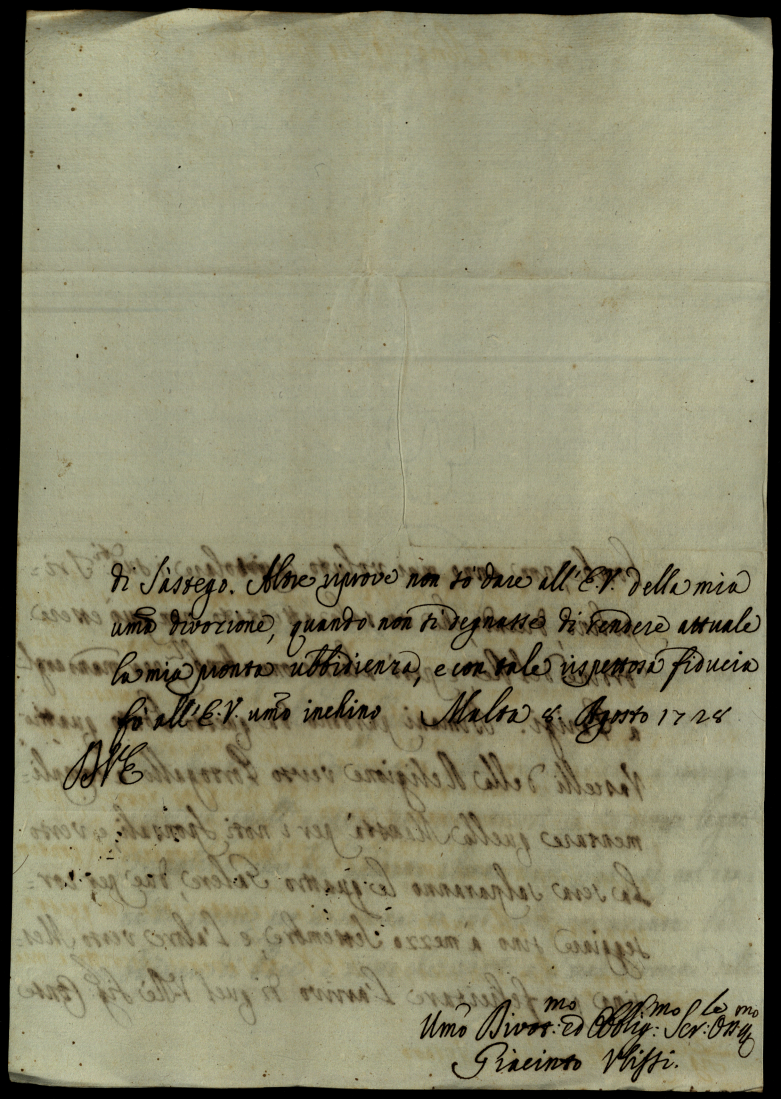 di Sástego. Altre riprove non sò dare all'E.V. della mia
uma divozione, quando non si degnasse di rendere attuale
la mia pronta ubbidienza, e con tale rispettosa fiducia
fò all'E.V. umo inchino Malta 8. Agosto 1728
Umo Divot:mo ed Obblig:mo Ser:le Ossmo
Giacinto Ulissi.